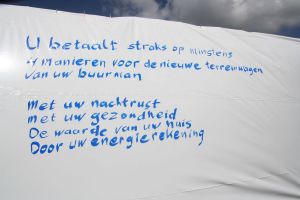 U betaalt straks op minstens
4 manieren voor de nieuwe terreinwagen
van uw buurman
Met uw nachtrust
met uw gezondheid
De waarde van uw huis
Door uw energierekening